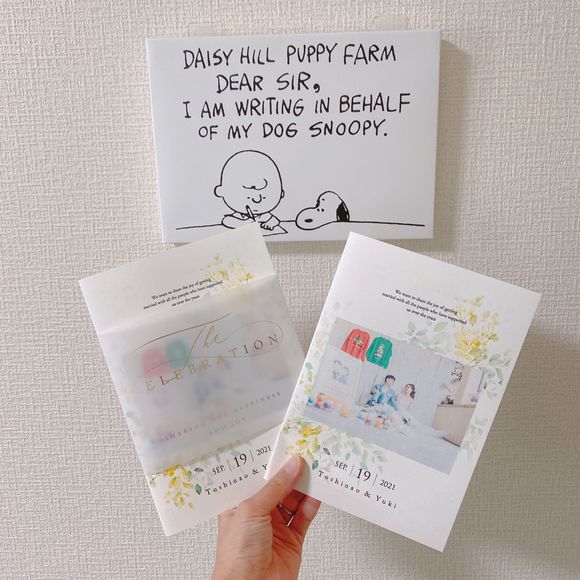 DAISY HILL PUPPY FARM
DEAR SIR,
I AM WRITING IN BEHALF
OF MY DOG SNOOPY.
We want to share the joy of getting
married with all the people who have supported
us over the years
The
CELEBRATION
SHARING OUR HAPPINESS
AND JOY
SEP. 19 2021
Toshinao & Yuki
We want to share the joy of getting
married with all the people who have supported
us over the years
SEP. 19 2021
Toshinao & Yuki